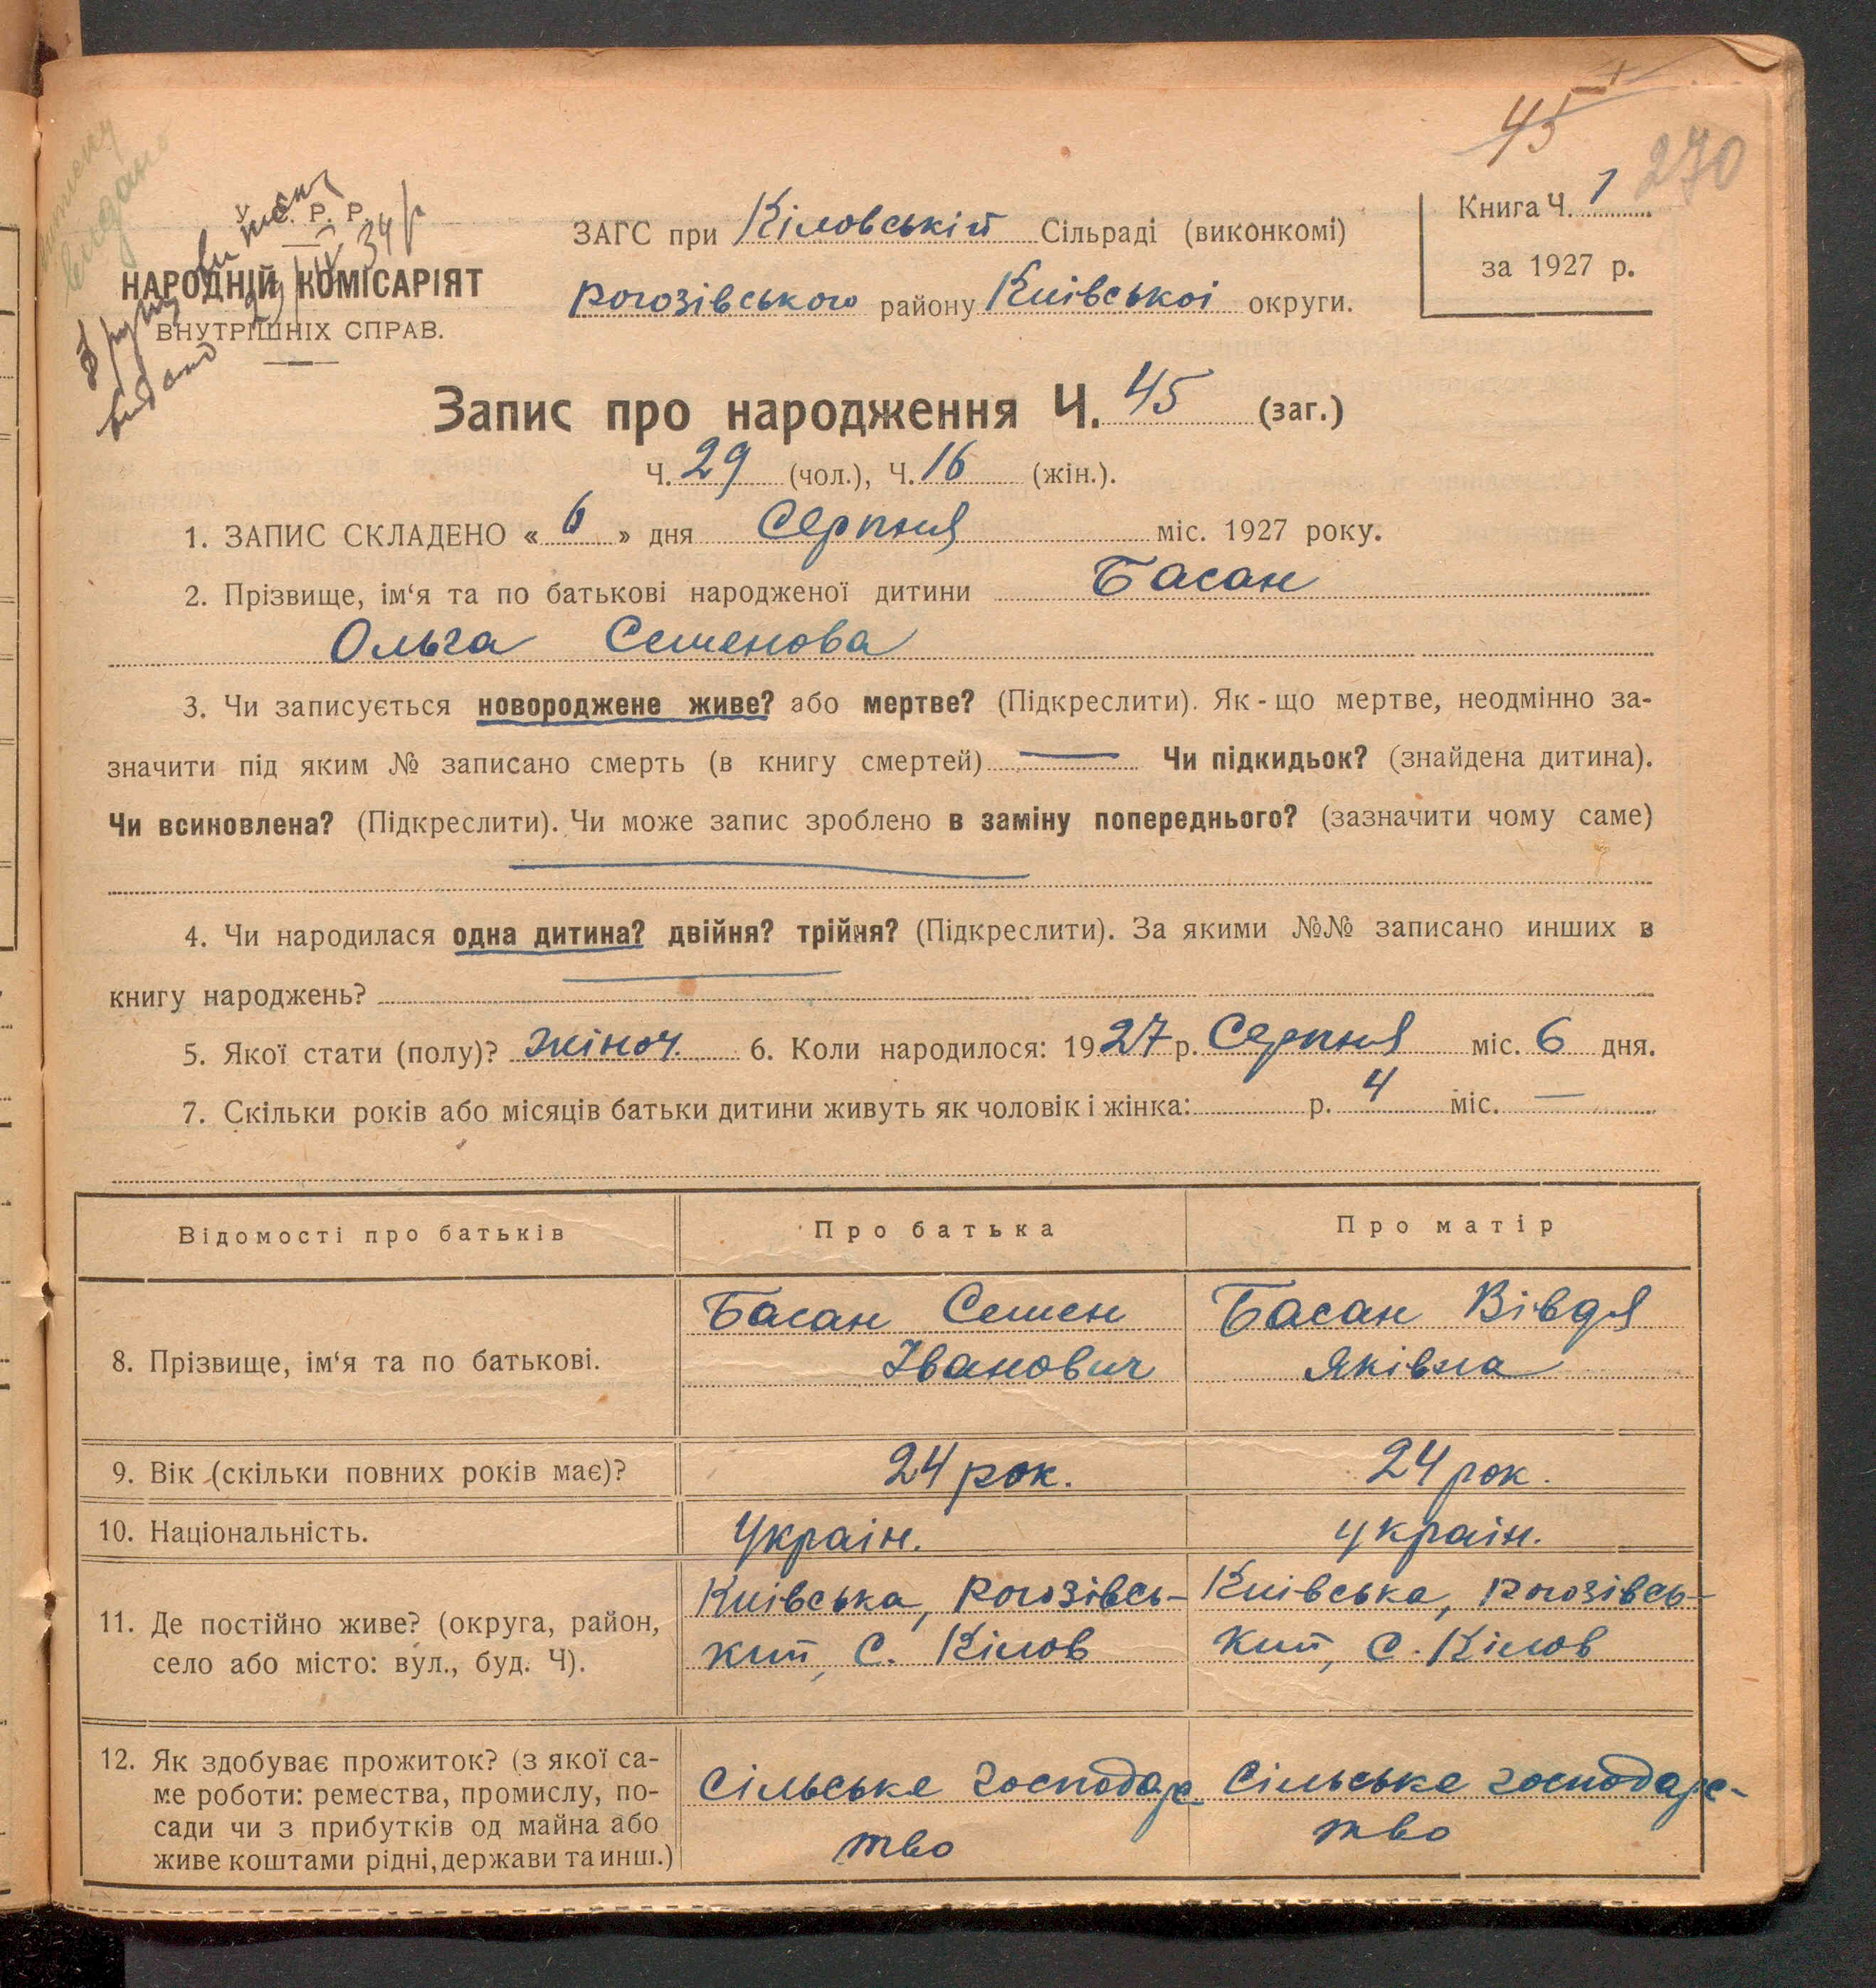 45
270
У. С. Р. Р.
НАРОДНІЙ КОМІСАРІЯТ
ВНУТРІШНІХ СПРАВ.
видано
34 р
ЗАГС при Кіловській Сільраді (виконкомі)
Рогозівського району Київської округи.
Книга Ч. 1
за 1927 р.
Запис про народження Ч. 45 (заг.)
Ч. 29 (чол.), Ч. 16 (жін.).
1. ЗАПИС СКЛАДЕНО « 6 » дня Серпня міс. 1927 року.
2. Прізвище, ім‘я та по батькові народженої дитини Басан
Ольга Семенова
3. Чи записується новороджене живе? або мертве? (Підкреслити). Як-що мертве, неодмінно за-
значити під яким № записано смерть (в книгу смертей) — Чи підкидьок? (знайдена дитина).
Чи всиновлена? (Підкреслити). Чи може запис зроблено в заміну попереднього? (зазначити чому саме)
4. Чи народилася одна дитина? двійня? трійня? (Підкреслити). За якими №№ записано инших в
книгу народжень?
5. Якої стати (полу)? жіноч. 6. Коли народилося: 1927 р. Серпня міс. 6 дня.
7. Скільки років або місяців батьки дитини живуть як чоловік і жінка: р. 4 міс. —
Відомості про батьків Про батька Про матір
8. Прізвище, ім‘я та по батькові. Басан Семен Басан Вівдя
Іванович Яківна
9. Вік (скільки повних років має)? 24 рок. 24 рок.
10. Національність. Україн. україн.
11. Де постійно живе? (округа, район, Київська, Рогозівсь- Київська, Рогозівсь-
село або місто: вул., буд. Ч). кий, С. Кілов кий, С. Кілов
12. Як здобуває прожиток? (з якої са-
ме роботи: ремества, промислу, по- Сільське господарс Сільське господарс-
сади чи з прибутків од майна або тво тво
живе коштами рідні, держави та инш.)